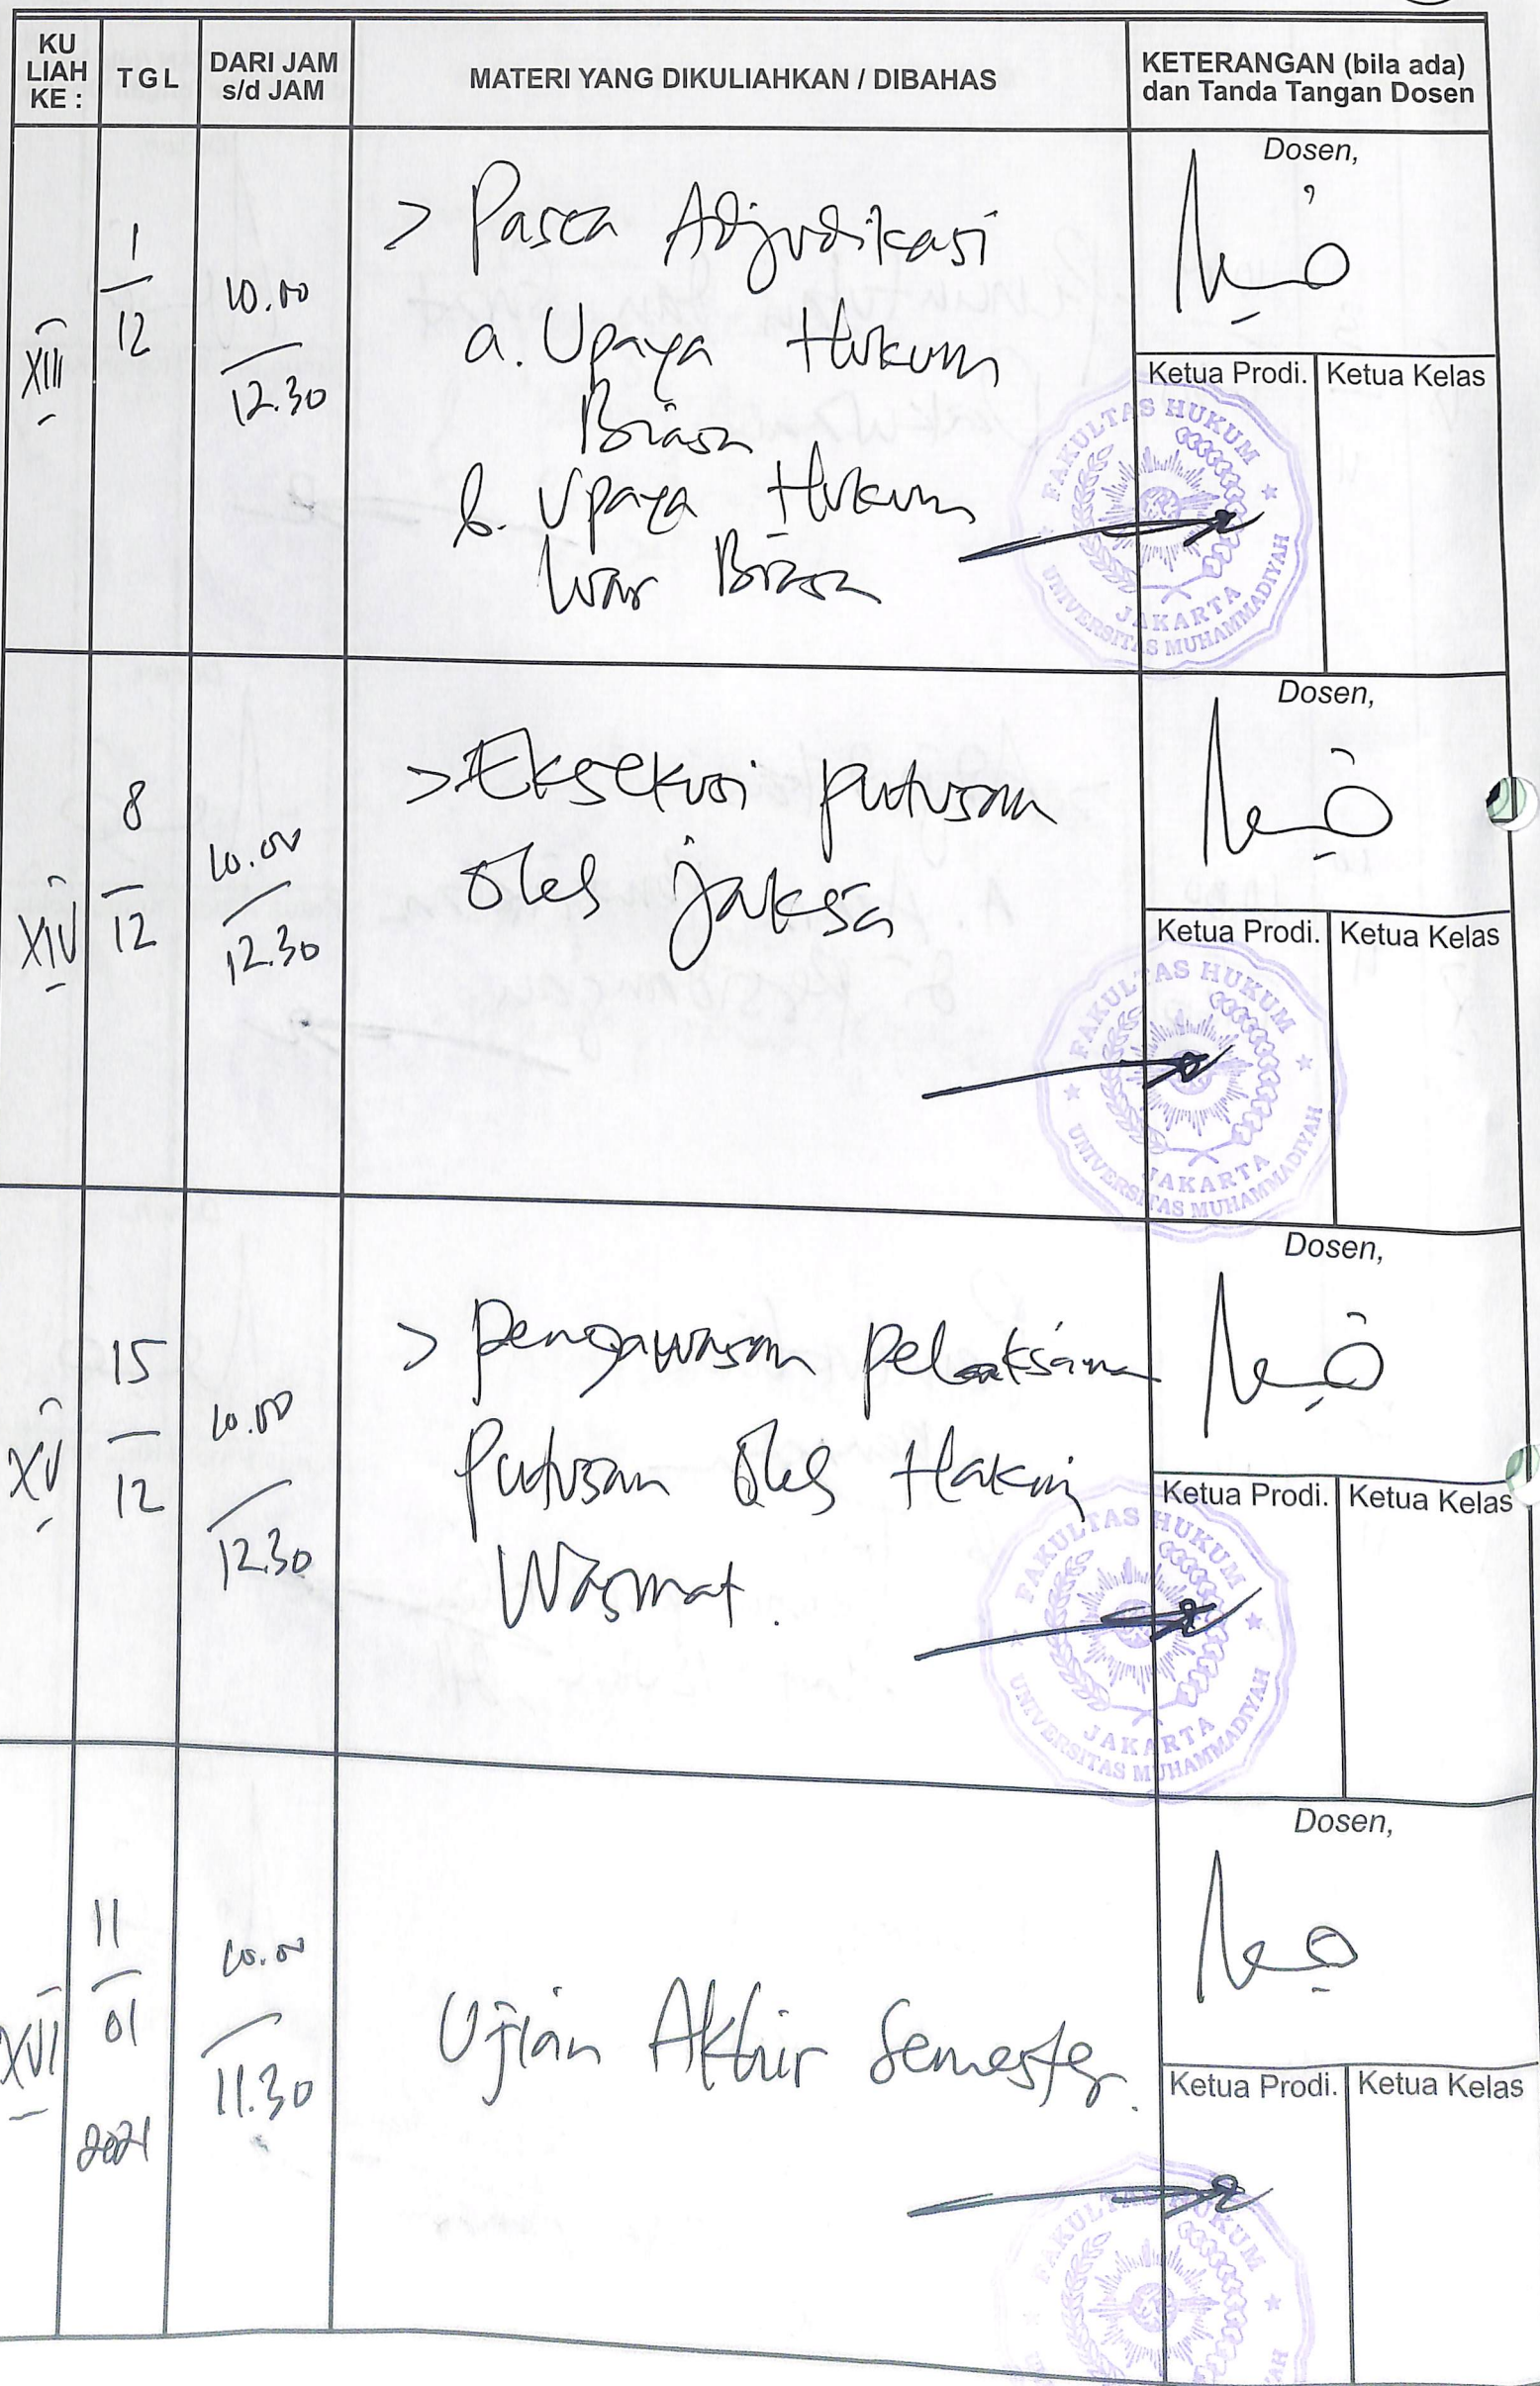 KU
LIAH
KE :
TGL
DARI JAM
s/d JAM
MATERI YANG DIKULIAHKAN / DIBAHAS
KETERANGAN (bila ada)
dan Tanda Tangan Dosen
XIII
1
12
10.00
12.30
> Pasca Adjudikasi
a. Upaya Hukum
Biasa
b. Upaya Hukum
luar Biasa
Dosen,
Ketua Prodi.
Ketua Kelas
FAKULTAS HUKUM
JAKARTA
UNIVERSITAS MUHAMMADIYAH
XIV
8
12
10.00
12.30
> Eksekusi putusan
oleh jaksa
Dosen,
Ketua Prodi.
Ketua Kelas
FAKULTAS HUKUM
JAKARTA
UNIVERSITAS MUHAMMADIYAH
XV
15
12
10.00
12.30
> Pengawasan pelaksana
Putusan Oleh Hakim
Wasmat.
Dosen,
Ketua Prodi.
Ketua Kelas
FAKULTAS HUKUM
JAKARTA
UNIVERSITAS MUHAMMADIYAH
XVI
11
01
2021
10.00
11.30
Ujian Akhir Semester.
Dosen,
Ketua Prodi.
Ketua Kelas
FAKULTAS HUKUM